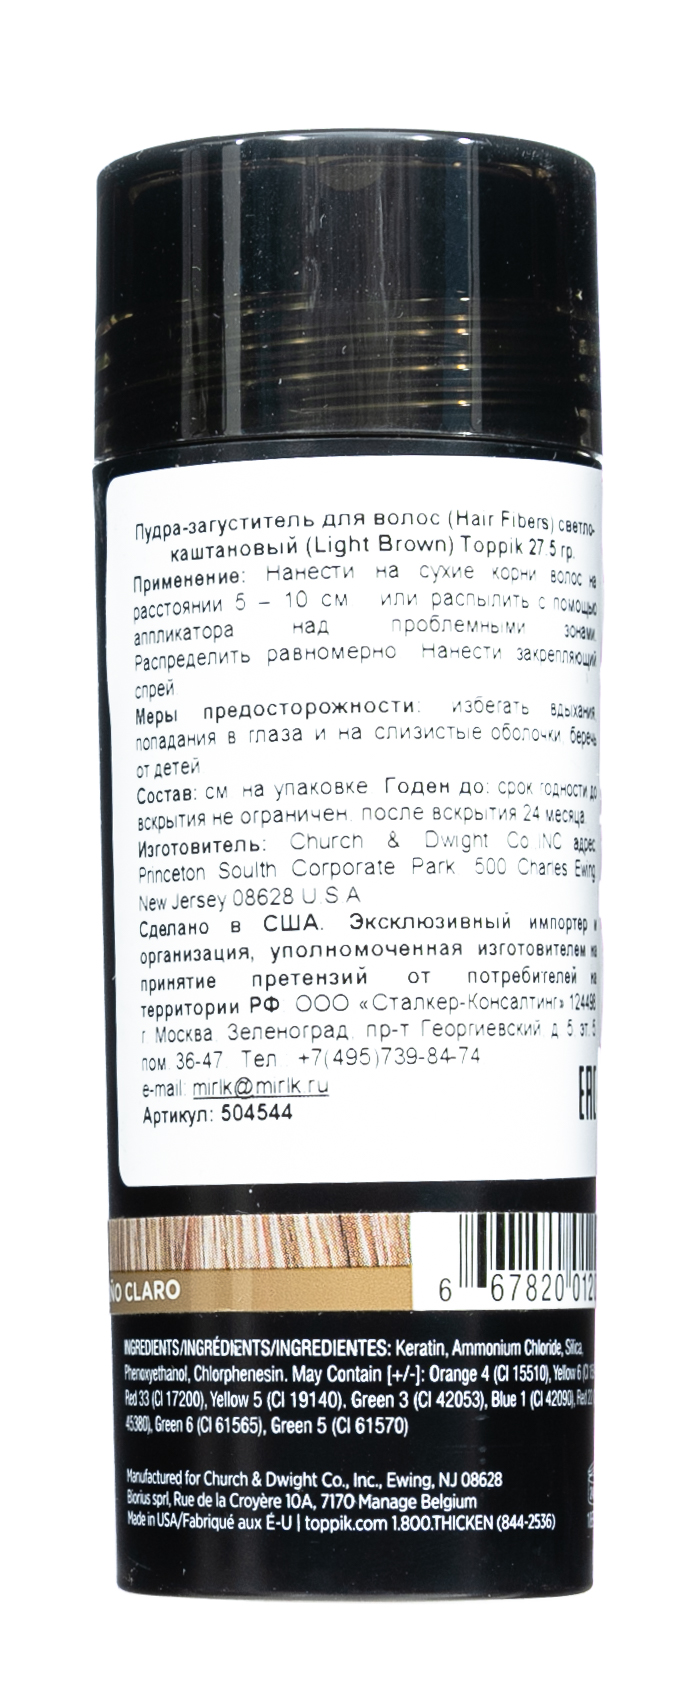 Пудра-загуститель для волос (Hair Fibers) светло-
каштановый (Light Brown) Toppik 27.5 гр.
Применение: Нанести на сухие корни волос на
расстоянии 5 – 10 см или распылить с помощью
аппликатора над проблемными зонами.
Распределить равномерно Нанести закрепляющий
спрей
Меры предосторожности: избегать вдыхания,
попадания в глаза и на слизистые оболочки, беречь
от детей
Состав: см на упаковке Годен до: срок годности до
вскрытия не ограничен, после вскрытия 24 месяца
Изготовитель: Church & Dwight Co.,INC адрес:
Princeton Soulth Corporate Park 500 Charles Ewing
New Jersey 08628 U.S.A
Сделано в США. Эксклюзивный импортер и
организация, уполномоченная изготовителем на
принятие претензий от потребителей на
территории РФ: ООО «Сталкер-Консалтинг» 124498
г Москва, Зеленоград, пр-т Георгиевский д 5, эт. 5
пом. 36-47. Тел.: +7(495)739-84-74
e-mail: mirlk@mirlk.ru
Артикул: 504544
EAC
ÑO CLARO
6 67820 012
INGREDIENTS/INGRÉDIENTS/INGREDIENTES: Keratin, Ammonium Chloride, Silica,
Phenoxyethanol, Chlorphenesin. May Contain [+/-]: Orange 4 (CI 15510), Yellow 6 (CI
Red 33 (CI 17200), Yellow 5 (CI 19140), Green 3 (CI 42053), Blue 1 (CI 42090), Red
45380), Green 6 (CI 61565), Green 5 (CI 61570)
Manufactured for Church & Dwight Co., Inc., Ewing, NJ 08628
Biorius sprl, Rue de la Croyère 10A, 7170 Manage Belgium
Made in USA/Fabriqué aux É-U | toppik.com 1.800.THICKEN (844-2536)